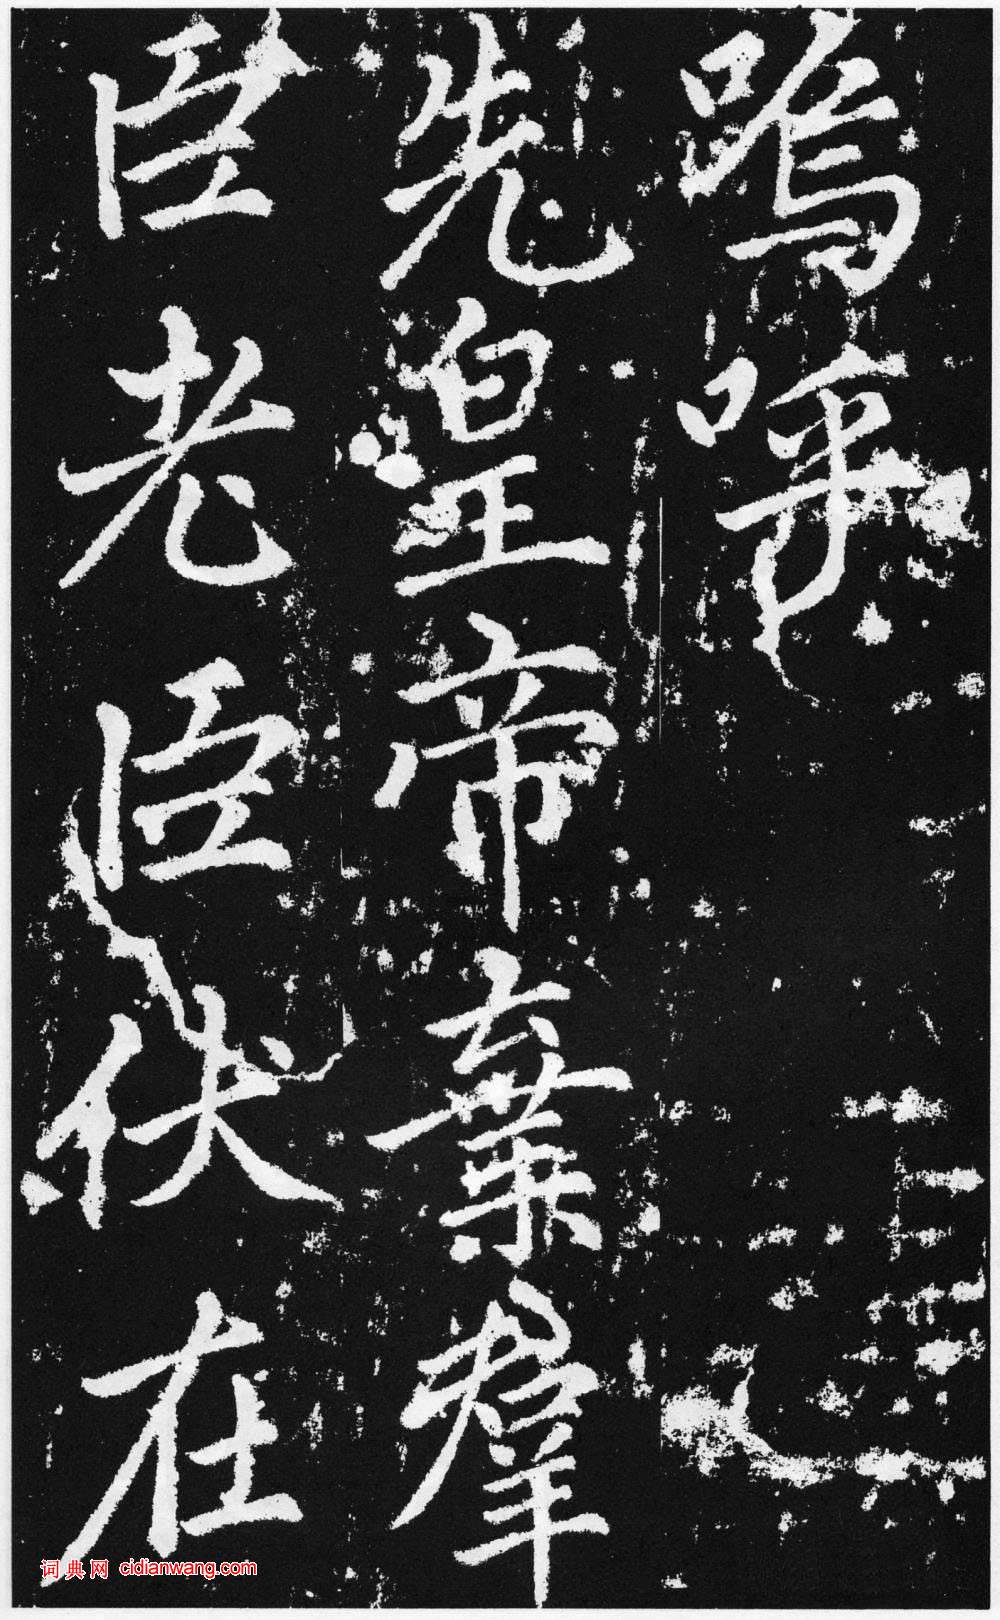 嗚呼
先皇帝棄羣
臣老臣伏在
词典网 cidianwang.com